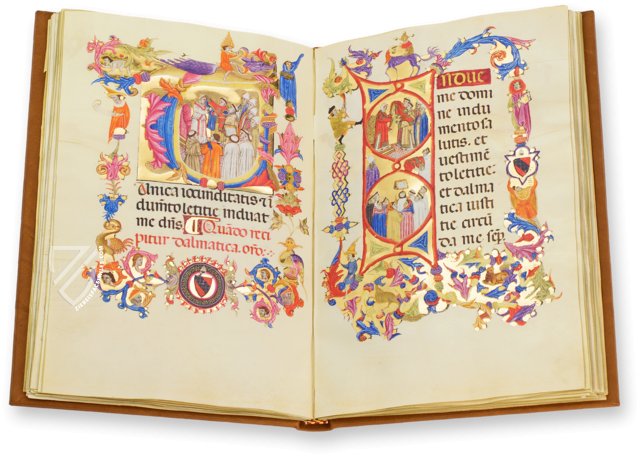 Tunica iocunditatis ⁊ ī
dum̃to letitie induat
me dñs. Quãdo reci
pitur dalmatica. oꝛo:
INDUE
me domi
ne indu
mento sa
lutis. et
uestimẽ
to letitie.
et dalma
tica iusti
tie circũ
da me sep̃.